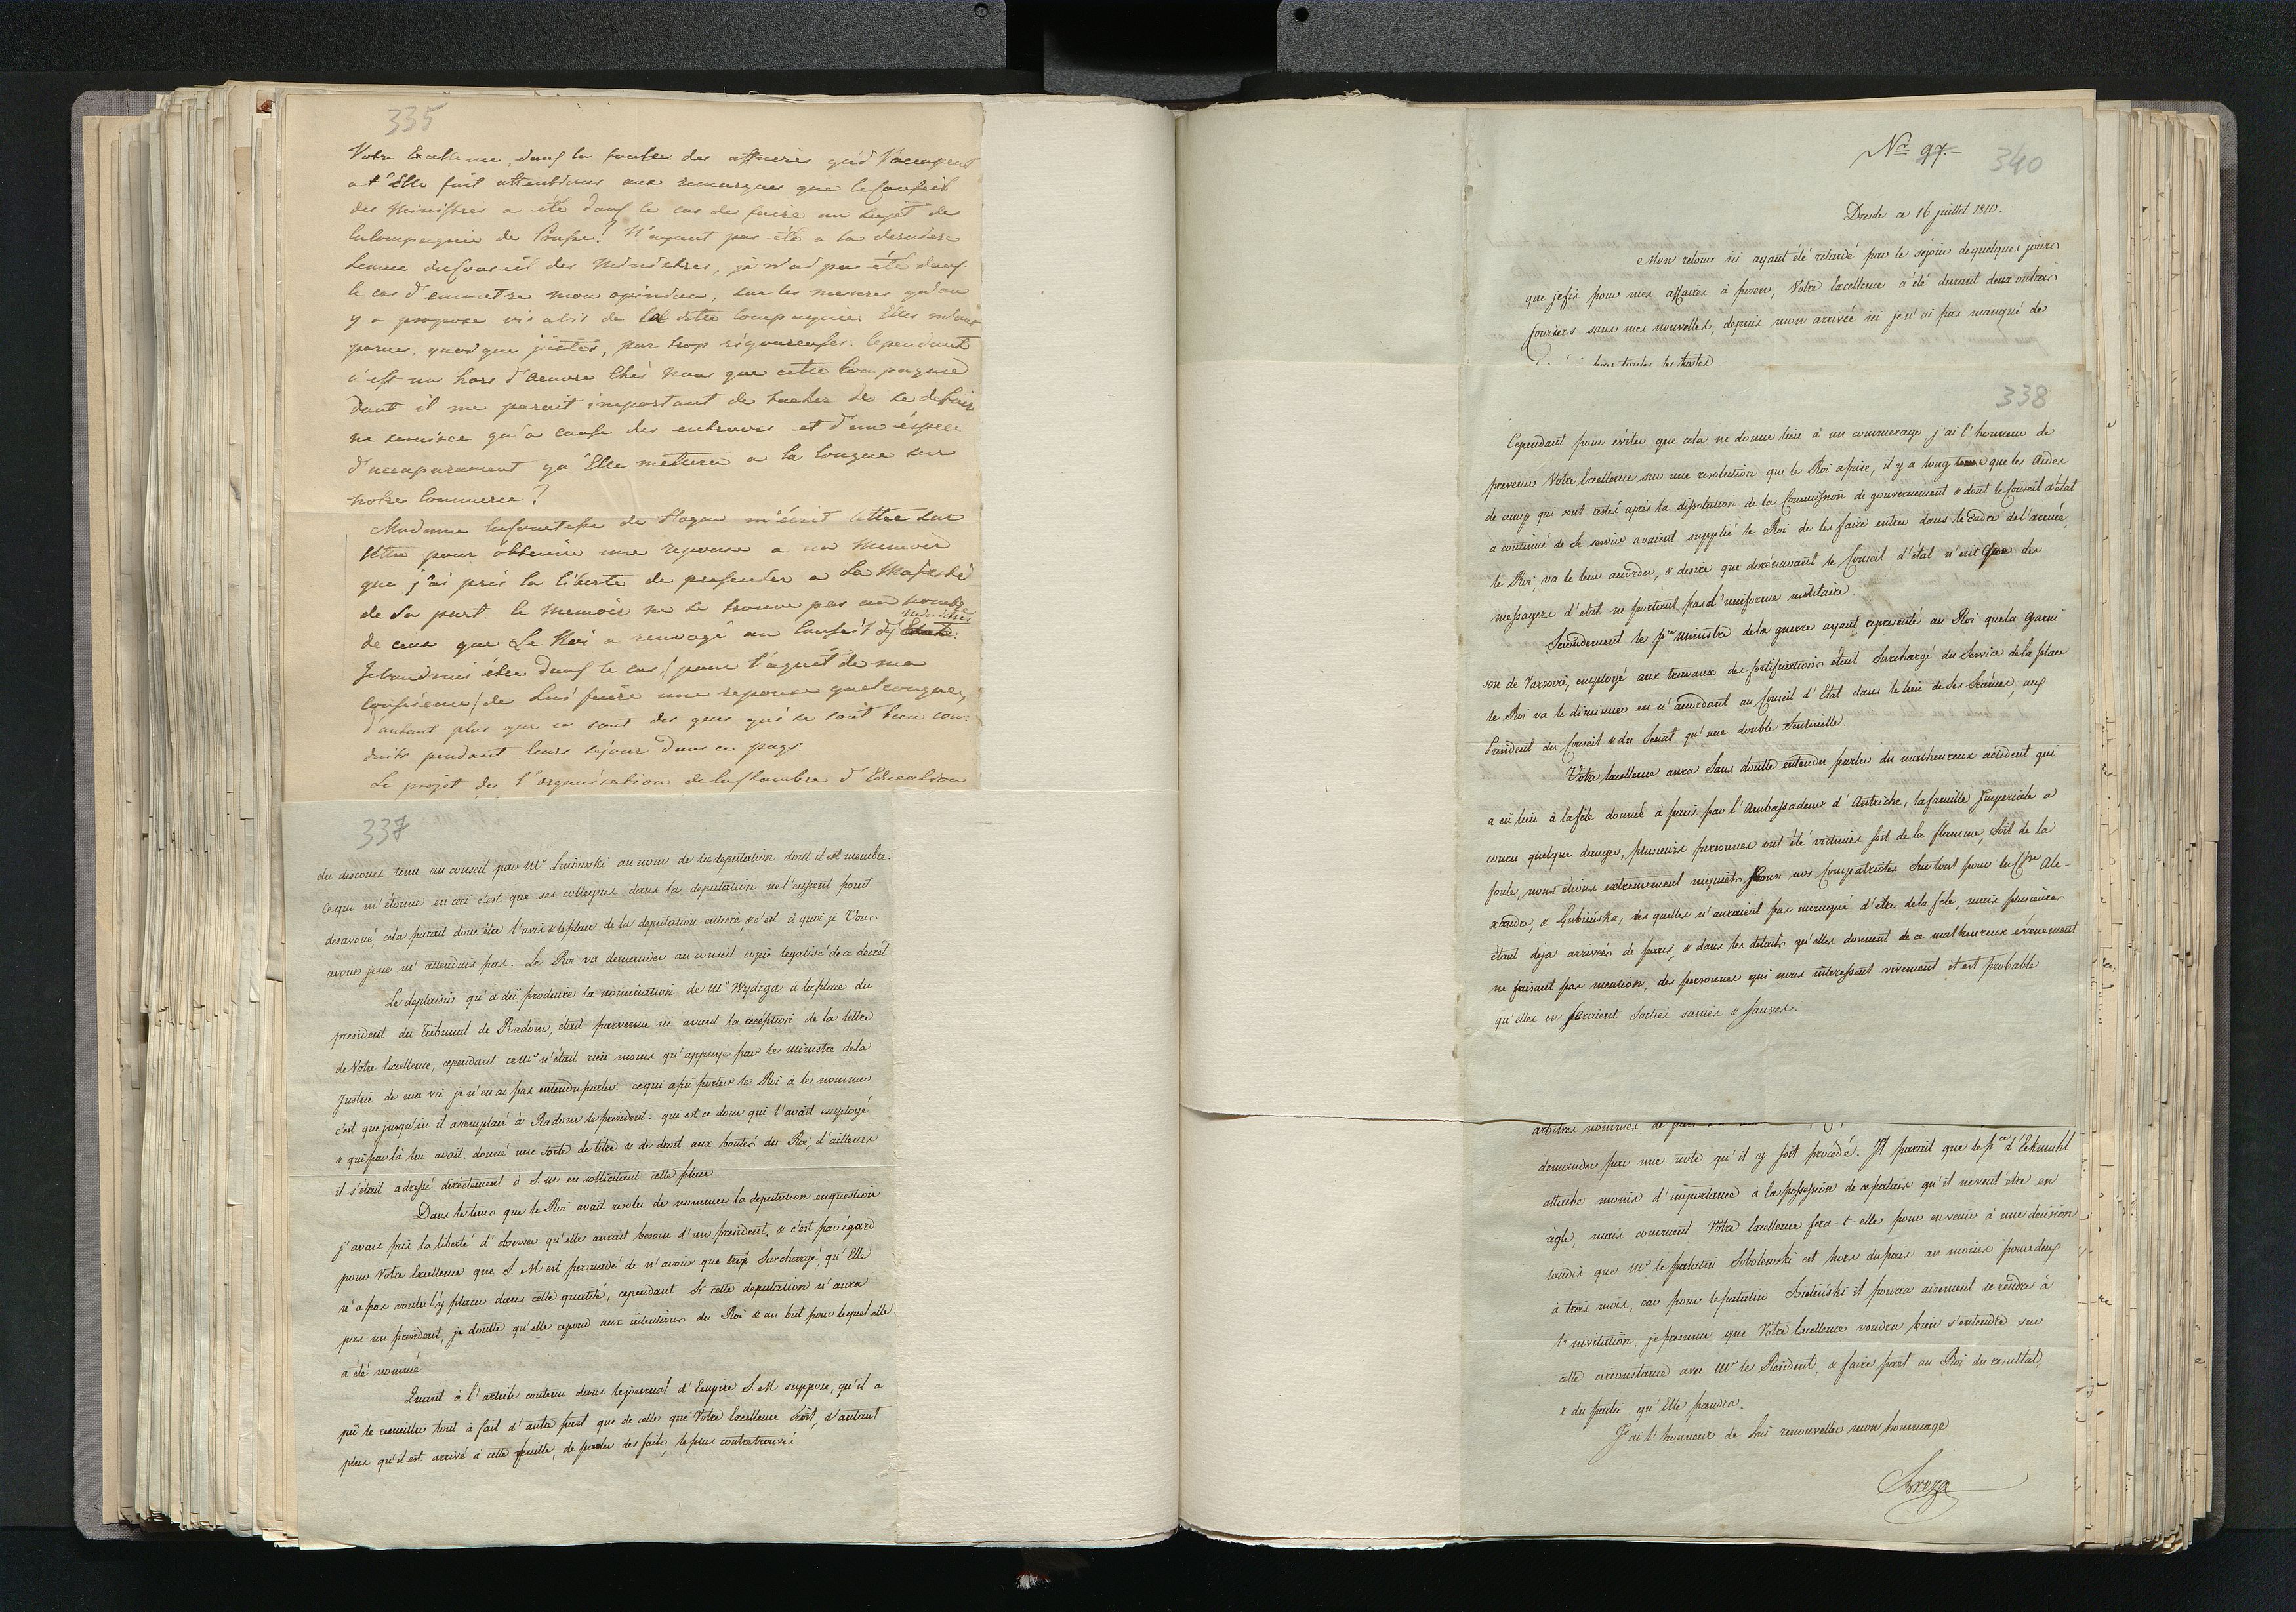 335
Votre Excellence, dans la foulée des affaires qui l'occupent
a t'Elle fait attentions aux remarques que le Conseil
des Ministres a été dans le cas de faire au sujet de
la Compagnie de Prusse! N'ayant pas été a la derniere
seance du Conseil des Ministres, je n'ai pas été dans
le cas d'emmetre mon opinion, sur les mesures qu'on
y a proposé vis a vis de la dite Compagnie. Elles m'ont
parues, quoique justes, par trop rigoureuses. Cependant
c'est un hors d'oeuvre chés nous que cette Compagnie
dont il me parait important de tacher de se defaire
ne seroisce qu'a cause des entraves et d'un éspece
d'accaparement qu'Elle mettera a la longue sur
notre Commerce?
Madame la Comtesse de Hagen m'écrit lettre sur
lettre pour obtenire une reponse a un Memoir
que j'ai pris la liberté de presenter a Sa Majesté
de Sa part. le Memoir ne se trouve pas au nombre
de ceux que Le Roi a renvoyé au Conseil des Ministres
Je voudrois étre dans le cas (pour l'aquit de ma
Consience) de Lui faire une reponse quelconque,
d'autant plus que ce sont des gens qui se sont bien con-
duits pendant leurs sejour dans ce pays.
Le projet de l'organisation de la Chambre d'Education
337
du discours tenu au conseil par Mr Linowski au nom de la deputation dont il est membre.
Ce qui m'étonne en ceci c'est que ses collegues dans la deputation ne l'eussent point
desavoué, cela parait donc être l'avis & le plan de la deputation entiere, & c'est à quoi je Vous
avoue je ne m'attendais pas. Le Roi va demander au conseil copie legalisé de ce decret
Le deplaisir qu'a dû produire la nomination de Mr Wydzga à la place du
president du Tribunal de Radom, était parvenu ici avant la réception de la lettre
de Votre Excellence, cependant ce Mr n'était rien moins qu'appuyé par le ministre de la
Justice de ma vie je n'en ai pas entendu parler. ce qui a pû porter le Roi à le nommer
c'est que jusqu'ici il a remplacé à Radom le president. qui est ce donc qui l'avait employé
& qui par là lui avait donné une sorte de titre & de droit aux bontés du Roi, d'ailleurs
il s'était adressé directement à S. M en sollicitant cette place
Dans le tems que le Roi avait resolu de nommer la deputation en question
j'avais pris la liberté d'observer qu'elle aurait besoin d'un president, & c'est par égard
pour Votre Excellence que S. M est persuadé de n'avoir que trop Surchargé, qu'Elle
n'a pas voulu l'y placer dans cette qualité, cependant Si cette deputation n'aura
pas un president, je doutte qu'elle repond aux intentions du Roi & au but pour lequel elle
a été nommé
Quant à l'article contenu dans le journal d'Empire S. M suppose, qu'il a
pû le recueillir tout à fait d'autre part que de celle que Votre Excellence Croit, d'autant
plus qu'il est arrivé à cette feuille, de parler des faits, le plus controuvés
Nro 97.
340
Dresde ce 16 juillet 1810.
Mon retour ici ayant été retardé par le sejour de quelques jours
que je fis pour mes affaires à posen, Votre Excellence a été durant deux ou trois
Couriers sans mes nouvelles, depuis mon arrivée ici je n'ai pas manqué de
338
Cependant pour éviter que cela ne donne lieu à un commerage j'ai l'honneur de
prevenir Votre Excellence sur une resolution que le Roi a prise, il y a long tems que les Aides
de camp qui sont restés après la dissolution de la Commission de gouvernement & dont le Conseil d'état
a continué de se servir avaient supplié le Roi de les faire entrer dans le cadre de l'armée,
le Roi va le leur accorder, & desire que dorénavant le Conseil d'état n'eut que des
messagers d'etat ne portant pas d'uniforme militaire.
Secondement le pce Ministre de la guerre ayant representé au Roi que la Garni
son de Varsovie, employé aux travaux des fortifications était Surchargé du Service de la place
le Roi va le diminuer en n'accordant au Conseil d'Etat dans le lieu de Ses Séances, aux
President du Conseil & du Senat qu'une double Sentinelle.
Votre Excellence aura Sans doutte entendu parler du malheureux accident qui
a eu lieu à la fête donnée à paris par l'Ambassadeur d'Autriche, la famille Imperiale a
couru quelque danger, plusieurs personnes ont été victimes soit de la flamme, soit de la
foule, nous étions extremement inquiets pour nos Compatriotes Surtout pour les Csse Ale-
xandre, & Lubienska, les quelles n'auraient pas manqué d'être de la fête, mais plusieurs
étant deja arrivées de paris, & dans les details qu'elles donnent de ce malheureux évenement
ne faisant pas mention, des personnes qui nous interessent vivement il est probable
qu'elles en seraient Sorties saines & sauves.
arbitres nommés de
demander par une note qu'il y soit procédé. Il parait que le pce d'Eckmuhl
attache moins d'importance à la possession de ce palais qu'il ne veut être en
règle, mais comment Votre Excellence fera-t-elle pour en venir à une decision
tandis que Mr le palatin Sobolewski est hors du pais au moins pour deux
à trois mois, car pour le palatin Bielinski il pourra aisement se rendre à
l'invitation. je presume que Votre Excellence voudra bien s'entendre sur
cette circonstance avec Mr le Resident, & faire part au Roi du resultat,
& du partie qu'Elle prendra.
J'ai l'honneur de Lui renouveller mon hommage
Breza